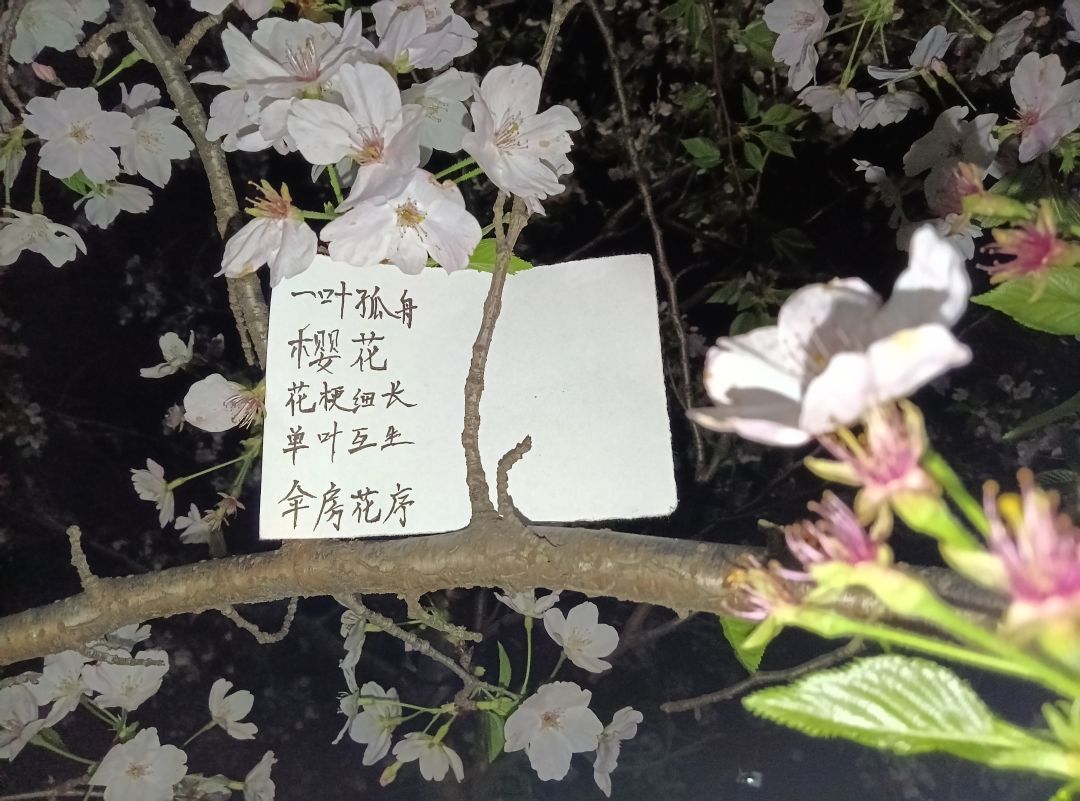 一叶孤舟
樱花
花梗细长
单叶互生
伞房花序